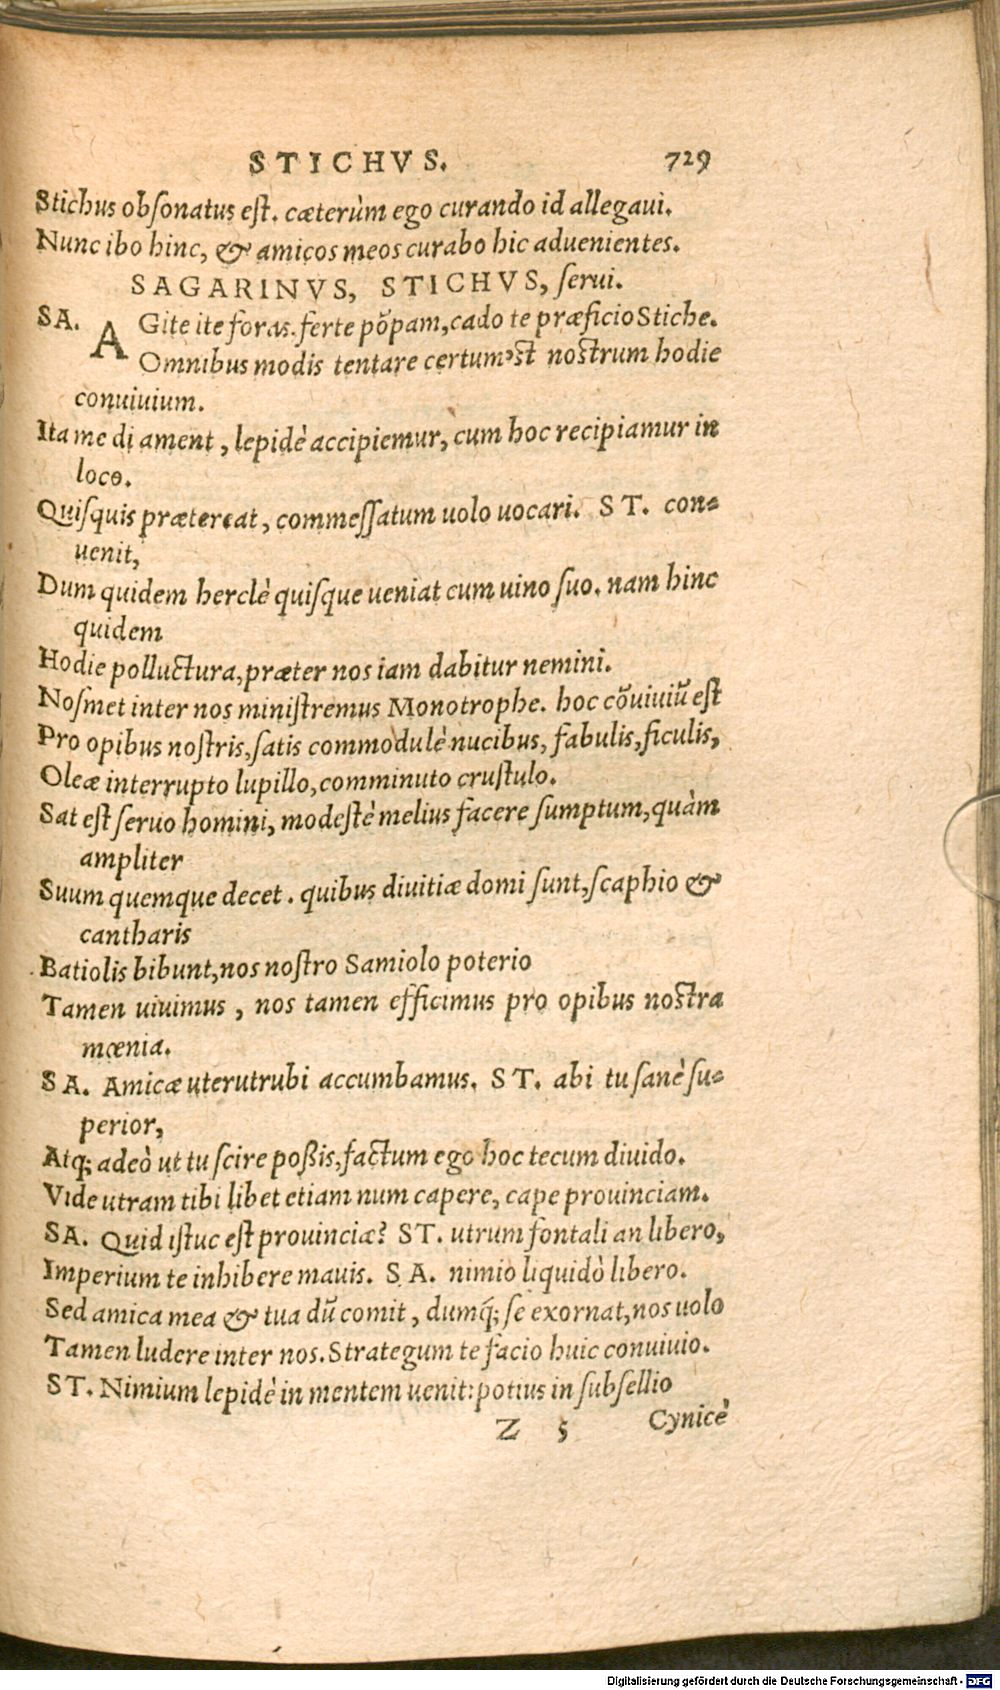 STICHVS. 729
Stichus obſonatus eſt. cæterùm ego curando id allegaui.
Nunc ibo hinc, & amicos meos curabo hic aduenientes.
SAGARINVS, STICHVS, ſerui.
SA. AGite ite foras. ferte põpam, cado te præficio Stiche.
Omnibus modis tentare certum'ſt noſtrum hodie
conuiuium.
Ita me di ament, lepidè accipiemur, cum hoc recipiamur in
loco.
Quiſquis prætereat, commeſſatum uolo uocari. ST. con-
uenit,
Dum quidem herclè quiſque ueniat cum uino ſuo. nam hinc
quidem
Hodie polluctura, præter nos iam dabitur nemini.
Noſmet inter nos miniſtremus Monotrophe. hoc cõuiuiũ eſt
Pro opibus noſtris, ſatis commodulè nucibus, fabulis, ficulis,
Oleæ interrupto lupillo, comminuto cruſtulo.
Sat eſt ſeruo homini, modeſtè melius facere ſumptum, quàm
ampliter
Suum quemque decet. quibus diuitiæ domi ſunt, ſcaphio &
cantharis
Batiolis bibunt, nos noſtro Samiolo poterio
Tamen uiuimus, nos tamen efficimus pro opibus noſtra
mœnia.
SA. Amicæ uterutrubi accumbamus. ST. abi tu ſanè ſu-
perior,
Atq; adeò ut tu ſcire poßis, factum ego hoc tecum diuido.
Vide utram tibi libet etiam num capere, cape prouinciam.
SA. Quid iſtuc eſt prouinciæ? ST. utrum fontali an libero,
Imperium te inhibere mauis. SA. nimio liquidò libero.
Sed amica mea & tua dũ comit, dumq́; ſe exornat, nos uolo
Tamen ludere inter nos. Strategum te facio huic conuiuio.
ST. Nimium lepidè in mentem uenit: potius in ſubſellio
Z 5 Cynicè
Digitalisierung gefördert durch die Deutsche Forschungsgemeinschaft - DFG